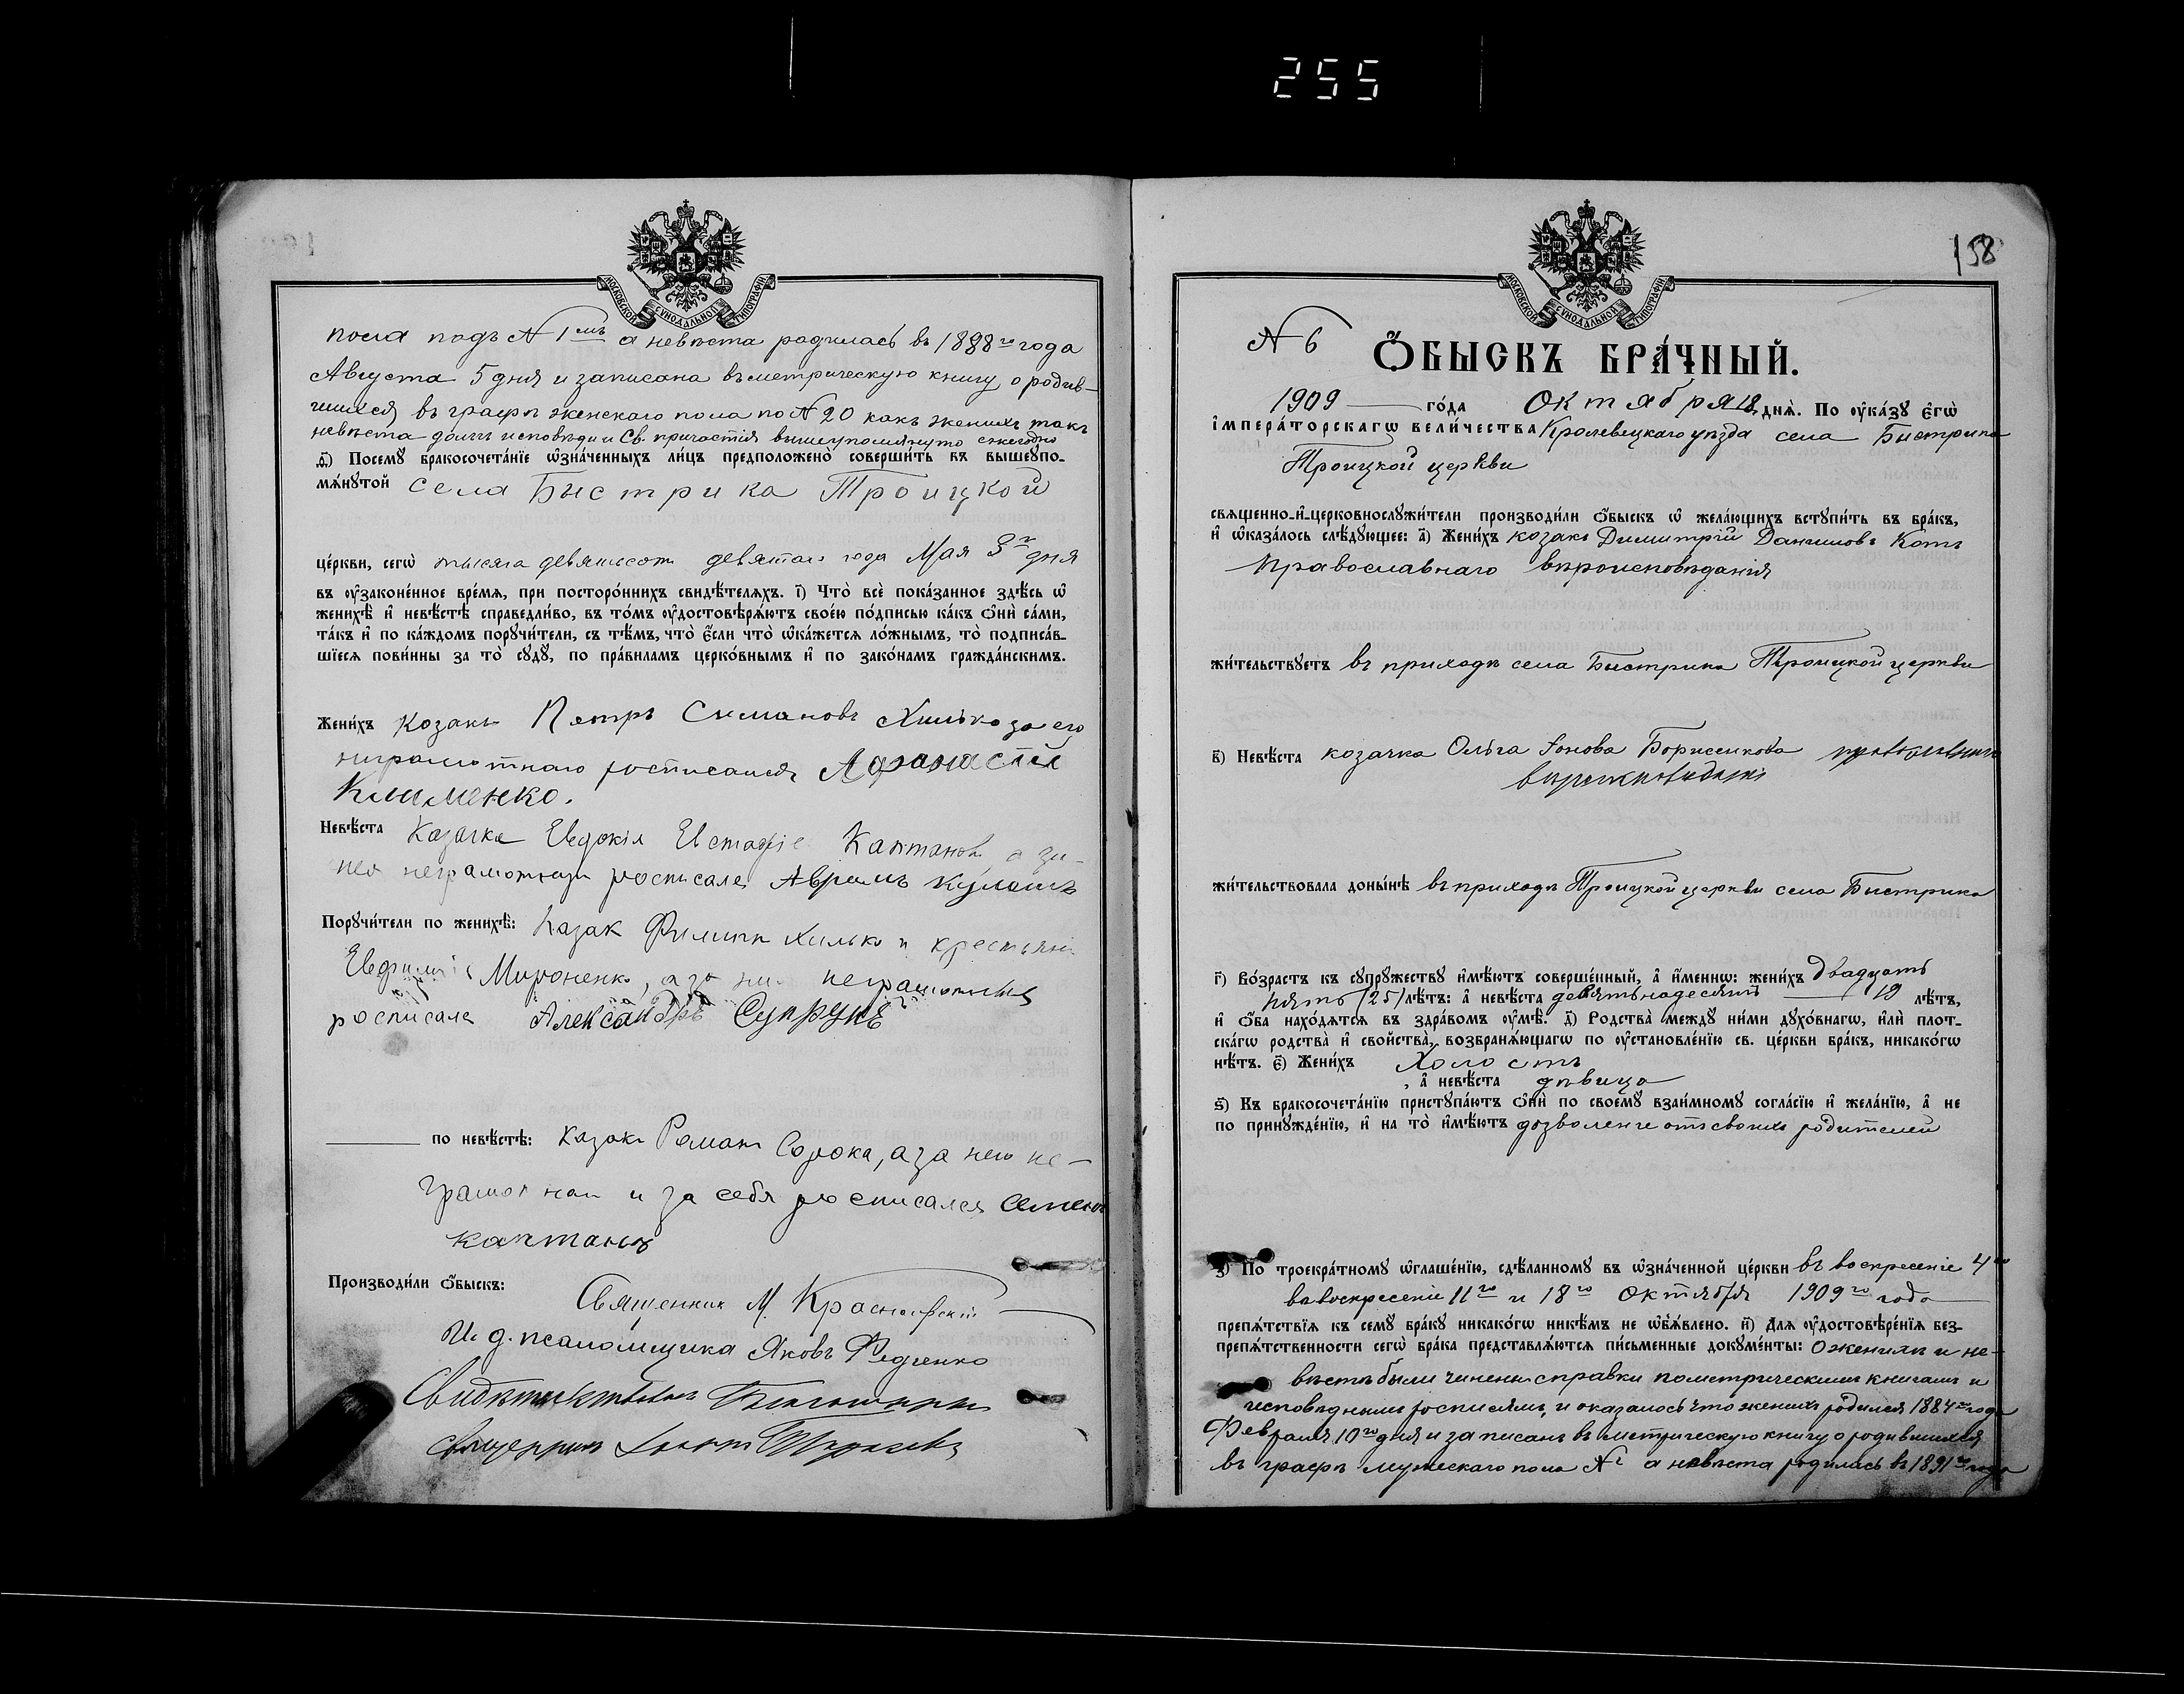 255
МОСКОВСКОЙ СѴНОДАЛЬНОЙ ТИПОГРАФІИ
пола подъ № 1мъ а невѣста родилась въ 1888го года
Августа 5 дня и записана въ метрическую книгу о родив-
шихся въ графѣ женскаго пола по № 20 какъ женихъ такъ
невѣста долгъ исповѣди и Св. причастія вышеупомянуто ежегодно
Посемꙋ бракосочета́нїе ѡзна́ченныхъ ли́цъ предположено̀ соверши́ть въ вышеꙋпо-
мѧ́нꙋтой села Быстрика Троицкой
це́ркви, сегѡ̀ тысяча девятьсотъ девятаго года Мая 3го дня
въ ᲂу҆зако́ненное вре́мѧ, при посторо́ннихъ свидѣ́телѧхъ. і҃) Что̀ всѐ пока́занное здѣ́сь ѡ҆
женихѣ̀ и҆ невѣ́стѣ справедли́во, въ то́мъ ᲂу҆достовѣрѧ́ютъ свое́ю по́дписью ка́къ ѻ҆нѝ са́ми,
та́къ и҆ по ка́ждомъ порꙋчи́тели, съ тѣ́мъ, что̀ є҆́сли что̀ ѡ҆ка́жетсѧ ло́жнымъ, то̀ подписа́в-
шїесѧ пови́нны за то̀ сꙋдꙋ̀, по пра́виламъ церко́внымъ и҆ по зако́намъ гражда́нскимъ.
Жени́хъ Козакъ Петръ Симановъ Хилько за его
неграмотнаго росписался Афанасій
Клименко.
Невѣ́ста Казачка Евдокія Евстафіе Каптанов а за-
нея неграмотную росписалсѧ Аврамъ Кулешъ
Порꙋчи́тели по женихѣ̀: Казак Филипп Хилько и крестьянин
Евфимій Мироненко, а за них неграмотных
росписался Александръ Супрунъ
по невѣ́стѣ: Казакъ Роман Сорока, а за него не-
грамотнаго и за себя росписался Семенъ
Каптанъ
Производи́ли ѻ҆́быскъ:
Священник М. Красновскій
И. д. псаломщика Яковъ Федченко
158
МОСКОВСКОЙ СѴНОДАЛЬНОЙ ТИПОГРАФІИ
№ 6
Ѻ҆́БЫСКЪ БРА́ЧНЫЙ.
1909 го́да Октября 18 днѧ̀. По ᲂу҆ка́зꙋ є҆гѡ̀
і҆мпера́торскагѡ вели́чества Кролевецкаго уѣзда села Быстрика
Троицкой церкви
свѧщенно-и҆-церковнослꙋжи́тели производи́ли ѻ҆́быскъ ѡ҆ жела́ющихъ встꙋпи́ть въ бра́къ,
и҆ ѡ҆каза́лось слѣ́дꙋющее: а҃) Жени́хъ козакъ Димитрій Даниловъ Котъ
православнаго вѣроисповѣданія
жи́тельствꙋетъ въ приходѣ села Быстрика Троицкой церкви
в҃) Невѣ́ста козачка Ольга Іонова Борисенкова православнаго
вѣроисповѣданія
жи́тельствовала доны́нѣ въ приходѣ Троицкой церкви села Быстрика
г҃) Во́зрастъ къ сꙋпрꙋ́жествꙋ и҆мѣ́ютъ соверше́нный, а҆ и҆́менно: жени́хъ двадцать
пять (25) лѣ́тъ: а҆ невѣ́ста девятьнадесять 19 лѣ́тъ,
и҆ ѻ҆́ба нахо́дѧтсѧ въ здра́вомъ ᲂу҆мѣ̀. д҃) Родства̀ междꙋ ни́ми дꙋхо́внагѡ, и҆лѝ плот-
ска́гѡ родства̀ и҆ свойства̀, возбранѧ́ющагѡ по ᲂу҆становле́нїю св. це́ркви бра́къ, никако́гѡ
нѣ́тъ. є҃) Жени́хъ Холостъ
, а҆ невѣ́ста дѣвица
ѕ҃) Къ бракосочета́нїю пристꙋпа́ютъ ѻ҆нѝ по своемꙋ̀ взаи́мномꙋ согла́сїю и҆ жела́нїю, а҆ не
по принꙋжде́нїю, и҆ на то̀ и҆мѣ́ютъ дозволеніе отъ своихъ родителей
з҃) По троекра́тномꙋ ѡ҆глаше́нїю, сдѣ́ланномꙋ въ ѡ҆зна́ченной це́ркви въ воскресеніе 4го
въ воскресеніе 11го и 18го Октября 1909го года
препѧ́тствїѧ къ семꙋ̀ бра́кꙋ никако́гѡ никѣ́мъ не ѡ҆б̾ѧ́влено. и҃) Длѧ ᲂу҆достовѣре́нїѧ без-
препѧ́тственности сегѡ̀ бра́ка представлѧ́ютсѧ пи́сьменные докꙋме́нты: О женихѣ и не-
вѣстѣ были чинены справки по метрическимъ книгамъ и
исповѣднымъ росписямъ, и оказалось что женихъ родился 1884го года
Февраля 10го дня и записанъ въ метрическую книгу о родившихся
въ графѣ мужескаго пола № а невѣста родилась въ 1891го года